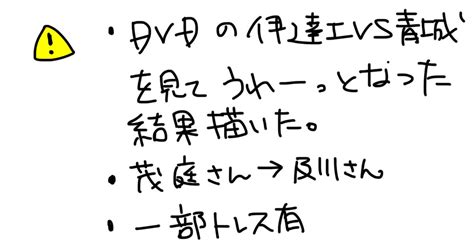 ・DVDの伊達工VS青城
を見てうわーっとなった
結果描いた。
・茂庭さん→及川さん
・一部トレス有